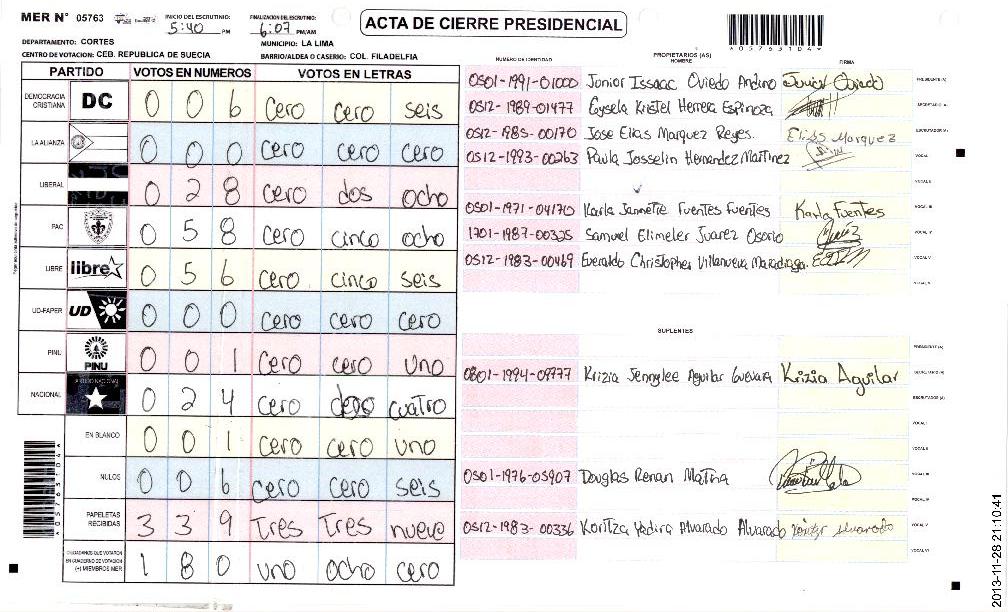 MER N° 05763
INICIO DEL ESCRUTINIO: 5:40 PM
FINALIZACION DEL ESCRUTINIO: 6:07 PM/AM
ACTA DE CIERRE PRESIDENCIAL
*05763104*
DEPARTAMENTO: CORTES
MUNICIPIO: LA LIMA
CENTRO DE VOTACION: CEB. REPUBLICA DE SUECIA
BARRIO/ALDEA O CASERIO: COL. FILADELFIA
PARTIDO VOTOS EN NUMEROS VOTOS EN LETRAS
DEMOCRACIA CRISTIANA DC 0 0 6 cero cero seis
LA ALIANZA 0 0 0 cero cero cero
LIBERAL 0 2 8 cero dos ocho
PAC 0 5 8 cero cinco ocho
LIBRE libre 0 5 6 cero cinco seis
UD-FAPER UD 0 0 0 cero cero cero
PINU PINU 0 0 1 cero cero uno
NACIONAL PARTIDO NACIONAL 0 2 4 cero dos cuatro
EN BLANCO 0 0 1 cero cero uno
NULOS 0 0 6 cero cero seis
PAPELETAS RECIBIDAS 3 3 9 Tres Tres nueve
CIUDADANOS QUE VOTARON EN CUADERNO DE VOTACION (+) MIEMBROS MER 1 8 0 uno ocho cero
*05763104*
PROPIETARIOS (AS)
NUMERO DE IDENTIDAD NOMBRE FIRMA
0501-1991-01000 Junior Issaac Oviedo Andino Junior Oviedo PRESIDENTE (A)
0512-1989-01477 Gysela Kristel Herrera Espinoza SECRETARIO (A)
0512-1985-00170 Jose Elias Marquez Reyes. Elias Marquez ESCRUTADOR (A)
0512-1993-00263 Paula Josselin Hernandez Martinez VOCAL I
VOCAL II
0501-1971-04170 Karla Jannette Fuentes Fuentes Karla Fuentes VOCAL III
1701-1987-00325 Samuel Elimeler Juarez Osorio VOCAL IV
0512-1983-00469 Everaldo Christopher Villanueva Maradiaga. VOCAL V
VOCAL VI
SUPLENTES
PRESIDENTE (A)
0801-1994-09777 Krizia Jennylee Aguilar Guevara Krizia Aguilar SECRETARIO (A)
ESCRUTADOR (A)
VOCAL I
VOCAL II
0501-1976-05907 Douglas Renan Matina VOCAL III
VOCAL IV
0512-1983-00336 Koritza Yadira Alvarado Alvarado VOCAL V
VOCAL VI
2013-11-28 21:10:41